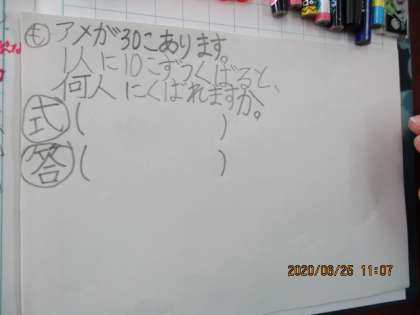 も アメが30こあります。
1人に10こずつくばると、
何人にくばれますか。
式( )
答( )
2020/06/25 11:07